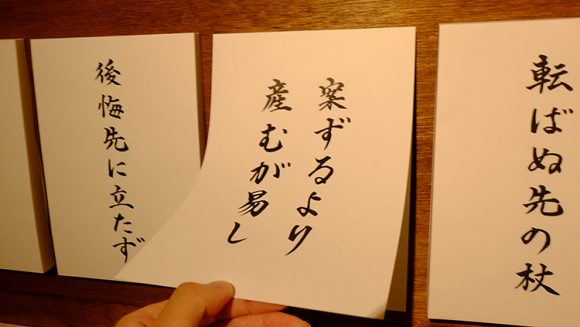 転ばぬ先の杖
案ずるより
産むが易し
後悔先に立たず